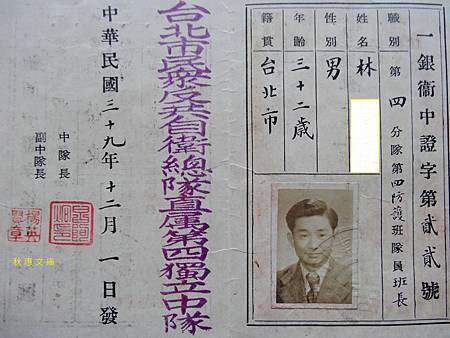 一銀衞中證字第貳貳號
職別 第四分隊第四防護班隊員班長
姓名 林
性別 男
年齡 三十二歲
籍貫 台北市
台北市民眾反共自衛總隊直屬第四獨立中隊
中隊長
副中隊長
中華民國三十九年十二月一日發
秋惠文庫